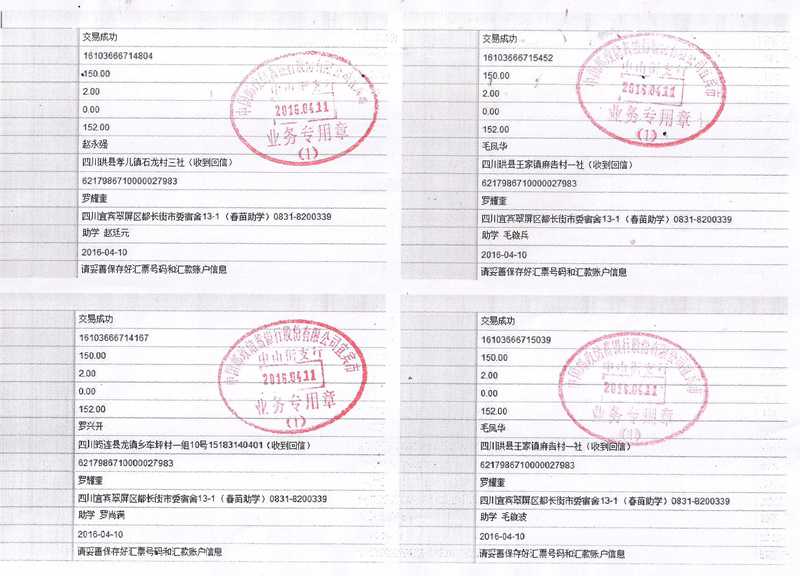 交易成功
16103666714804
150.00
2.00
0.00
152.00
赵永强
四川珙县孝儿镇石龙村三社（收到回信）
6217986710000027983
罗耀奎
四川宜宾翠屏区都长街市委宿舍13-1（春苗助学）0831-8200339
助学 赵廷元
2016-04-10
请妥善保存好汇票号码和汇款账户信息
中山街支行
2016.04.11
业务专用章
(1)
交易成功
16103666715452
150.00
2.00
0.00
152.00
毛凤华
四川珙县王家镇麻吉村一社（收到回信）
6217986710000027983
罗耀奎
四川宜宾翠屏区都长街市委宿舍13-1（春苗助学）0831-8200339
助学 毛啟兵
2016-04-10
请妥善保存好汇票号码和汇款账户信息
中山街支行
2016.04.11
业务专用章
(1)
交易成功
16103666714167
150.00
2.00
0.00
152.00
罗兴开
四川筠连县龙镇乡车坪村一组10号15183140401（收到回信）
6217986710000027983
罗耀奎
四川宜宾翠屏区都长街市委宿舍13-1（春苗助学）0831-8200339
助学 罗尚满
2016-04-10
请妥善保存好汇票号码和汇款账户信息
中国邮政储蓄银行股份有限公司宜宾市
中山街支行
2016.04.11
业务专用章
(1)
交易成功
16103666715039
150.00
2.00
0.00
152.00
毛凤华
四川珙县王家镇麻吉村一社（收到回信）
6217986710000027983
罗耀奎
四川宜宾翠屏区都长街市委宿舍13-1（春苗助学）0831-8200339
助学 毛啟波
2016-04-10
请妥善保存好汇票号码和汇款账户信息
中山街支行
2016.04.11
业务专用章
(1)